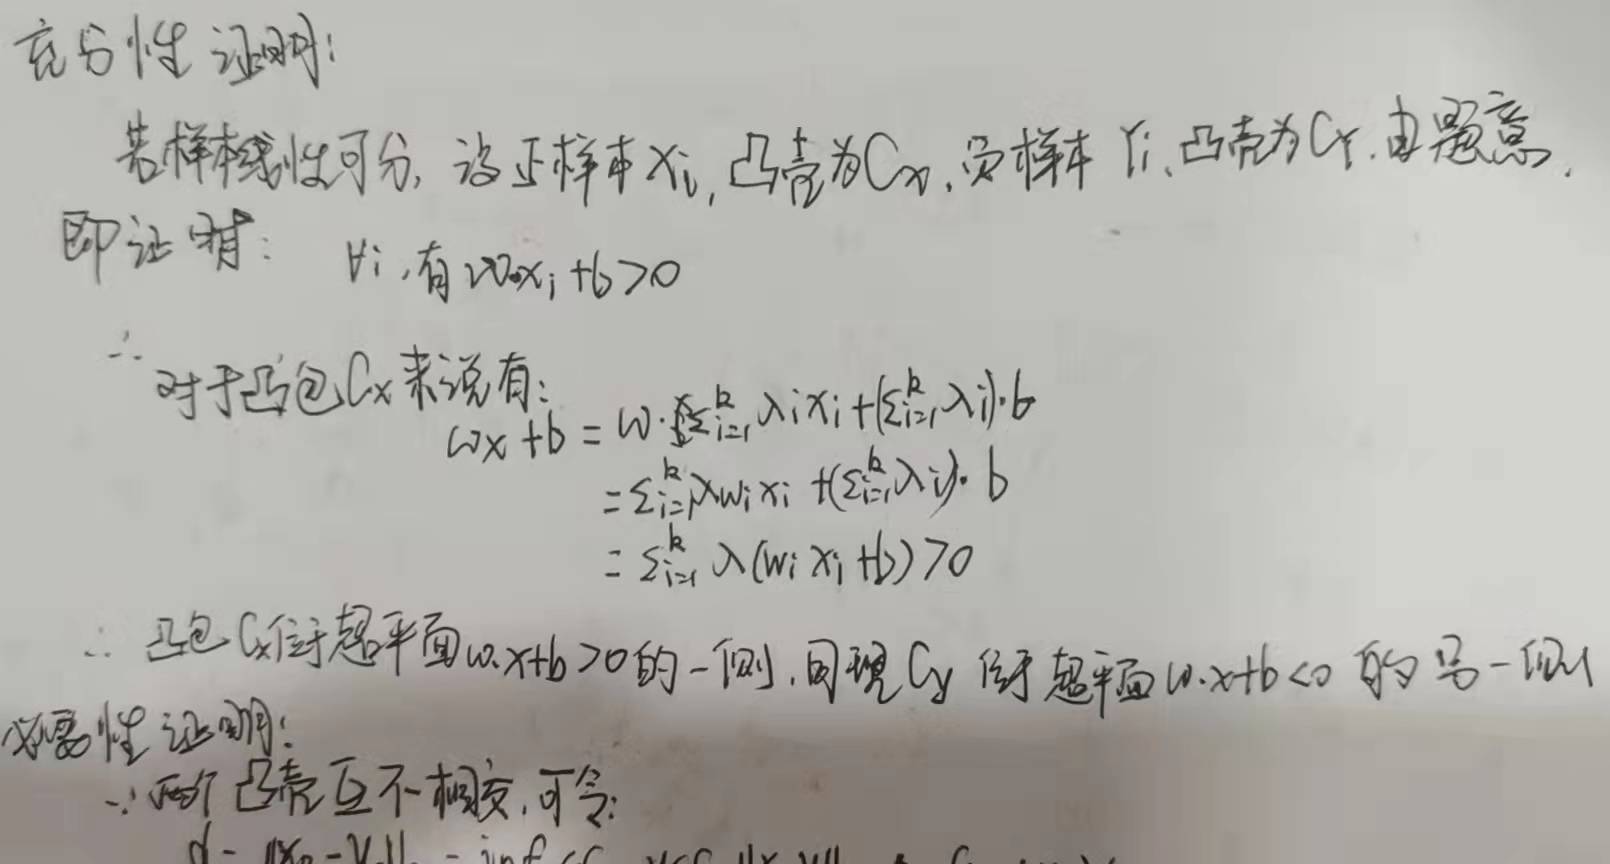 充分性证明:
若样本线性可分, 设正样本 Xi, 凸壳为Cx, 负样本 Yi, 凸壳为CY. 由题意,
即证明: ∀i, 有 w·xi+b>0
∴ 对于凸包Cx来说有:
wx+b = w·Σ_{i=1}^k λixi+(Σ_{i=1}^k λi)·b
= Σ_{i=1}^k λwixi +(Σ_{i=1}^k λi)·b
= Σ_{i=1}^k λ(wixi+b)>0
∴ 凸包Cx位于超平面w·x+b>0的一侧, 同理Cy位于超平面w·x+b<0的另一侧
必要性证明:
∵两个凸壳互不相交, 可令: